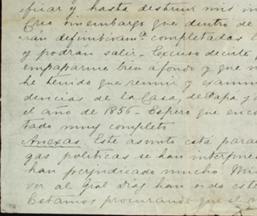 ficar y hasta destruir mis in
Creo sin embargo que dentro de
rán definitivamte completadas l
y podrán salir. Excuso decirte
empaparme bien a fondo y que m
he tenido que reunir y examin
dencias de la Casa, de Papá y d
el año de 1856. Espero que encon
trado muy completo.
Anexas. Este asunto está para
gas políticas se han interpues
han perjudicado mucho. Mi
ver al Gral Diaz han sido esté
Estamos procurando que el